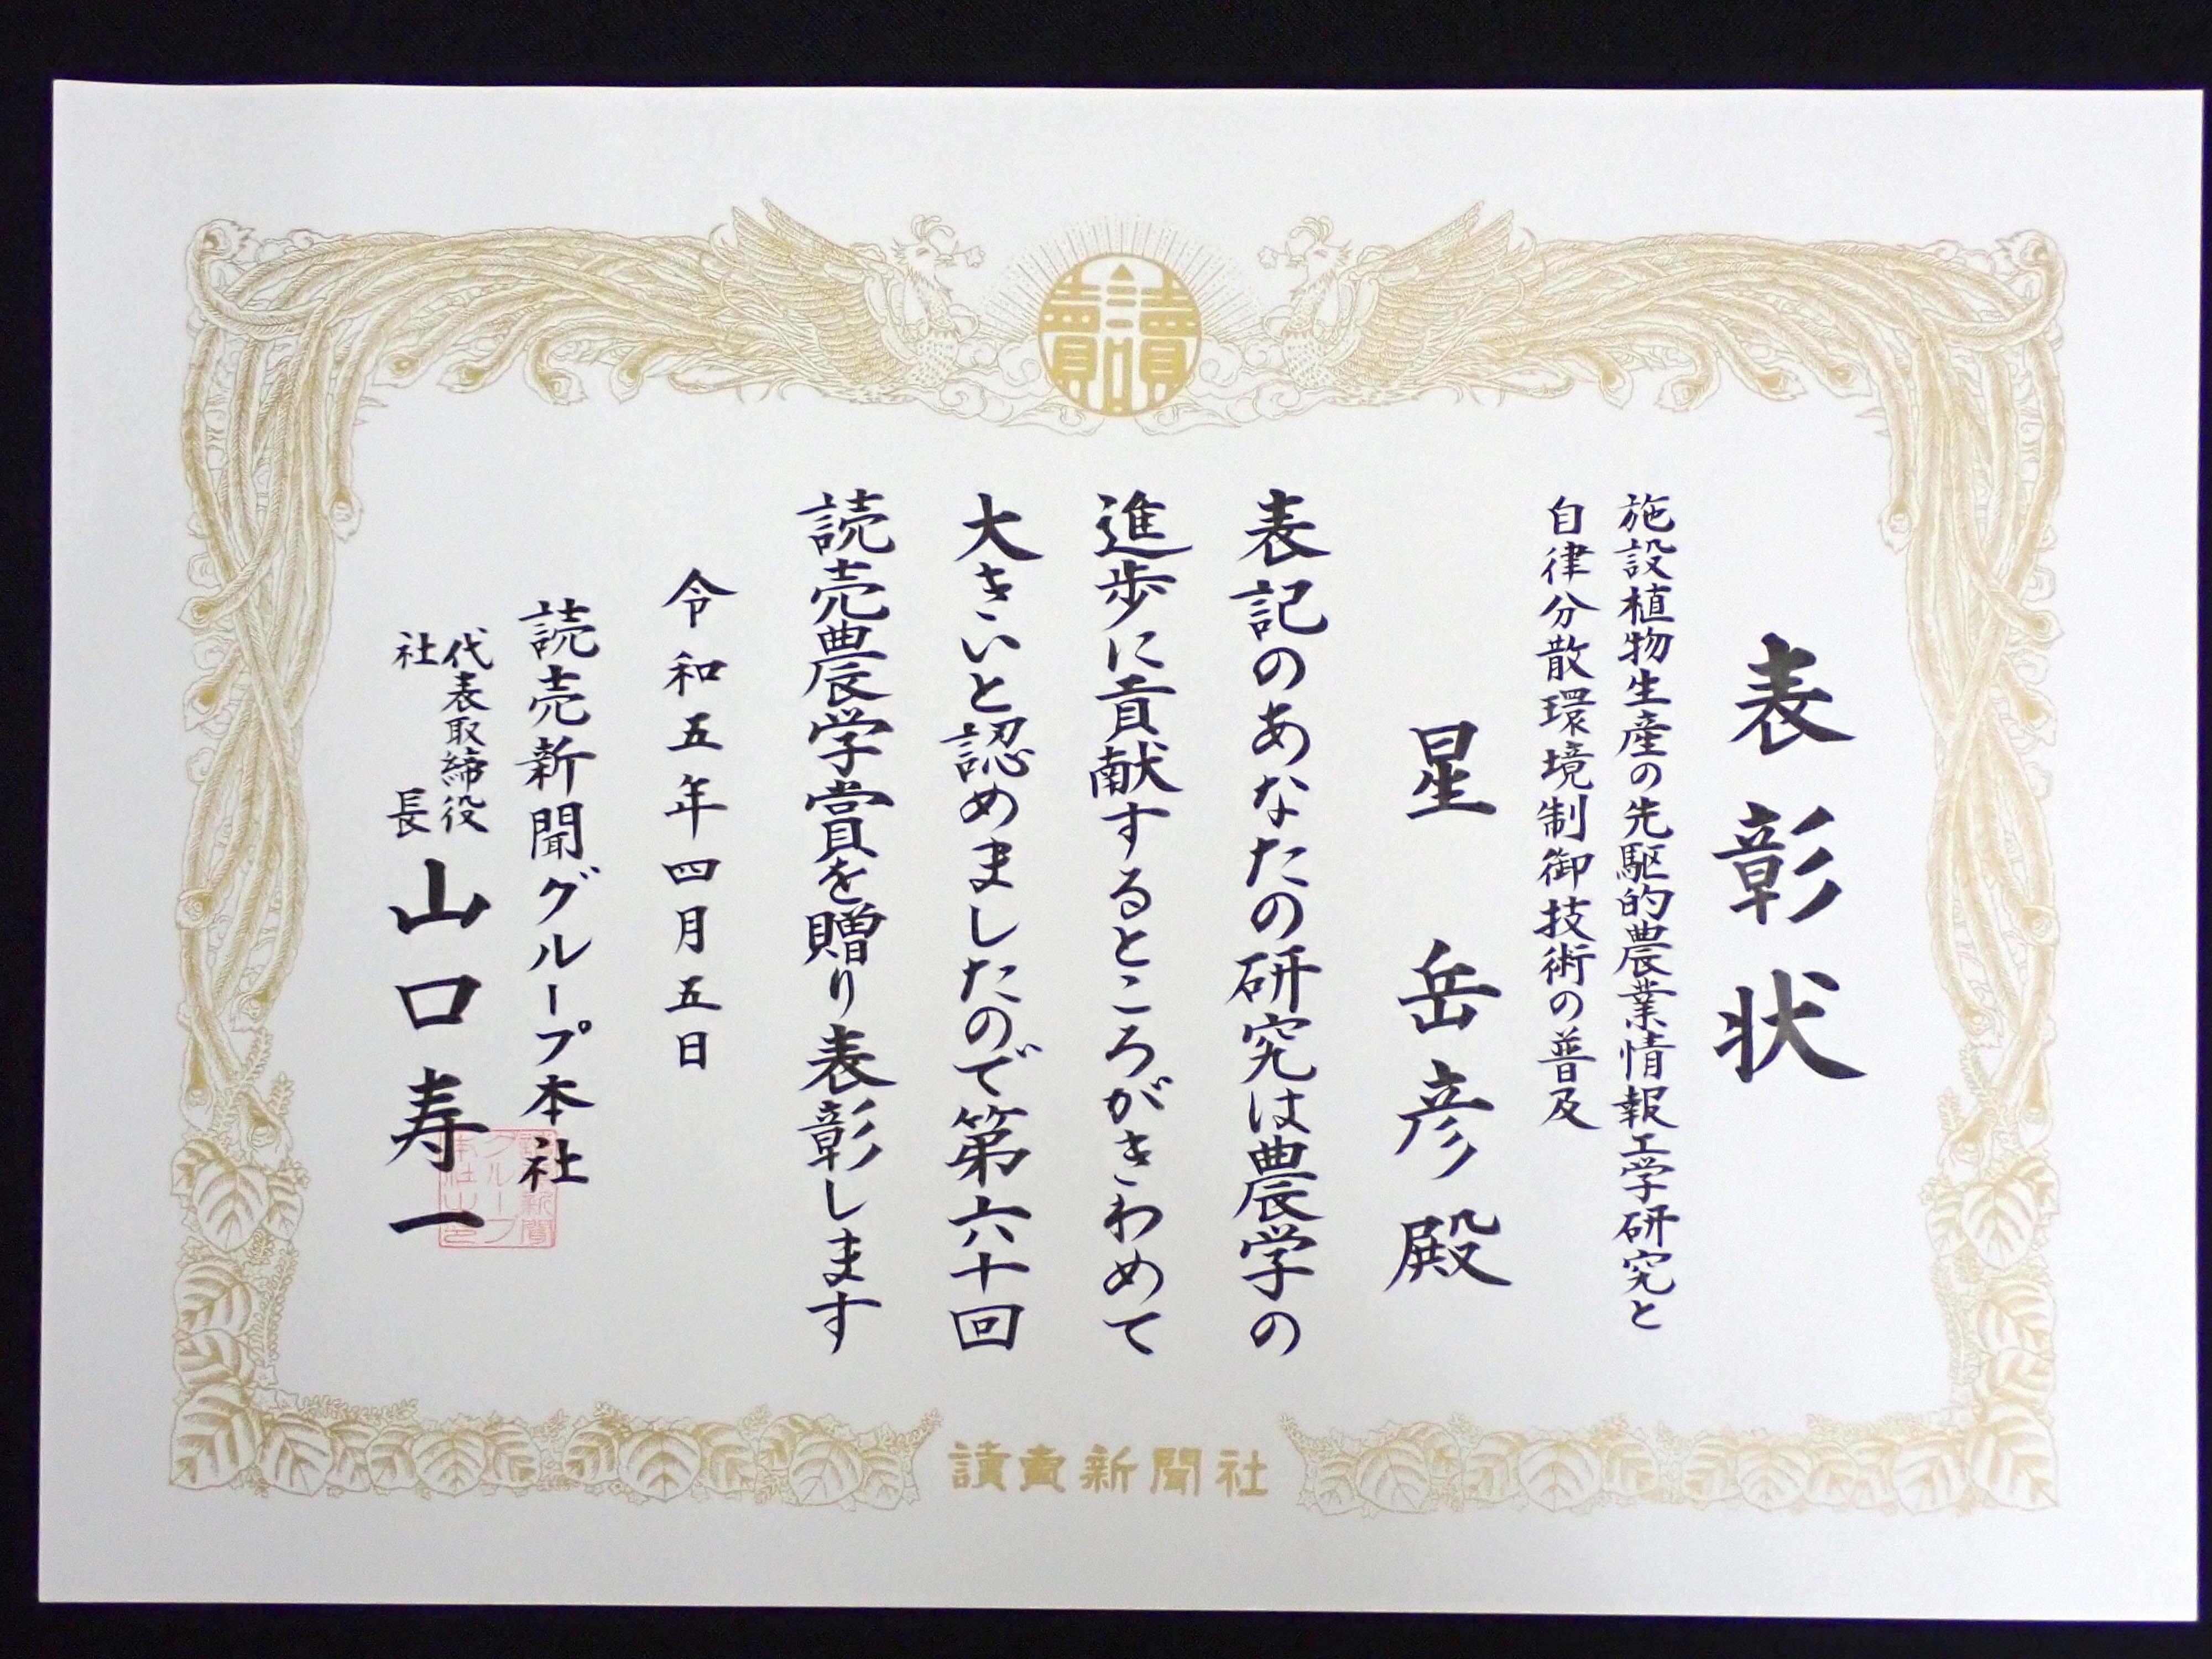 表彰状
施設植物生産の先駆的農業情報工学研究と
自律分散環境制御技術の普及
星 岳彦殿
表記のあなたの研究は農学の
進歩に貢献するところがきわめて
大きいと認めましたので第六十回
読売農学賞を贈り表彰します
令和五年四月五日
読売新聞グループ本社
代表取締役
社長
山口寿一
讀賣新聞社